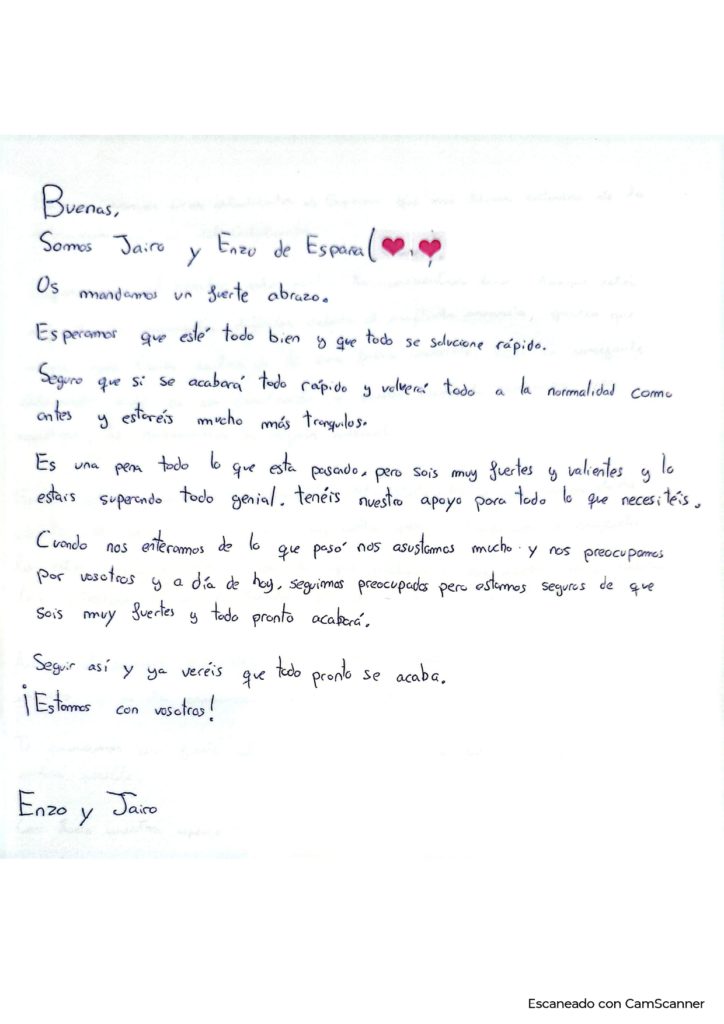 Buenas,
Somos Jairo y Enzo de España(❤, ❤
Os mandamos un fuerte abrazo.
Esperamos que esté todo bien y que todo se solucione rápido.
Seguro que si se acabará todo rápido y volverá todo a la normalidad como
antes y estaréis mucho más tranquilos.
Es una pena todo lo que esta pasando, pero sois muy fuertes y valientes y lo
estais superando todo genial. tenéis nuestro apoyo para todo lo que necesitéis.
Cuando nos enteramos de lo que pasó nos asustamos mucho y nos preocupamos
por vosotros y a día de hoy, seguimos preocupados pero estamos seguros de que
sois muy fuertes y todo pronto acabará.
Seguir así y ya veréis que todo pronto se acaba.
¡Estamos con vosotros!
Enzo y Jairo
Escaneado con CamScanner